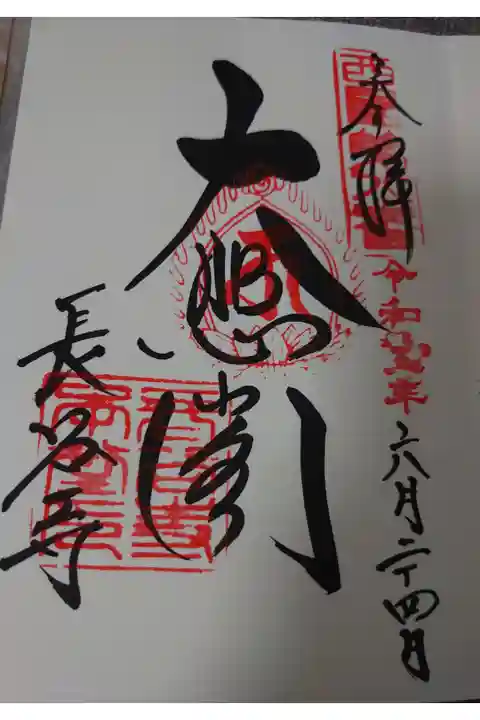 奉拝
令和
年
六月二十四日
大悲閣
長谷寺